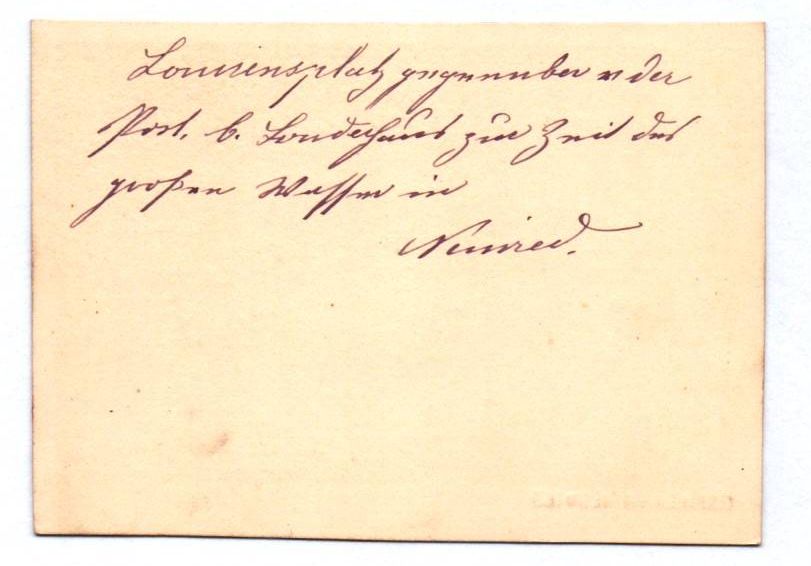 Louisensplatz gegenüber v der
Post. b. Sonderhaus zur Zeit des
großen Wasser in
Neuwied.